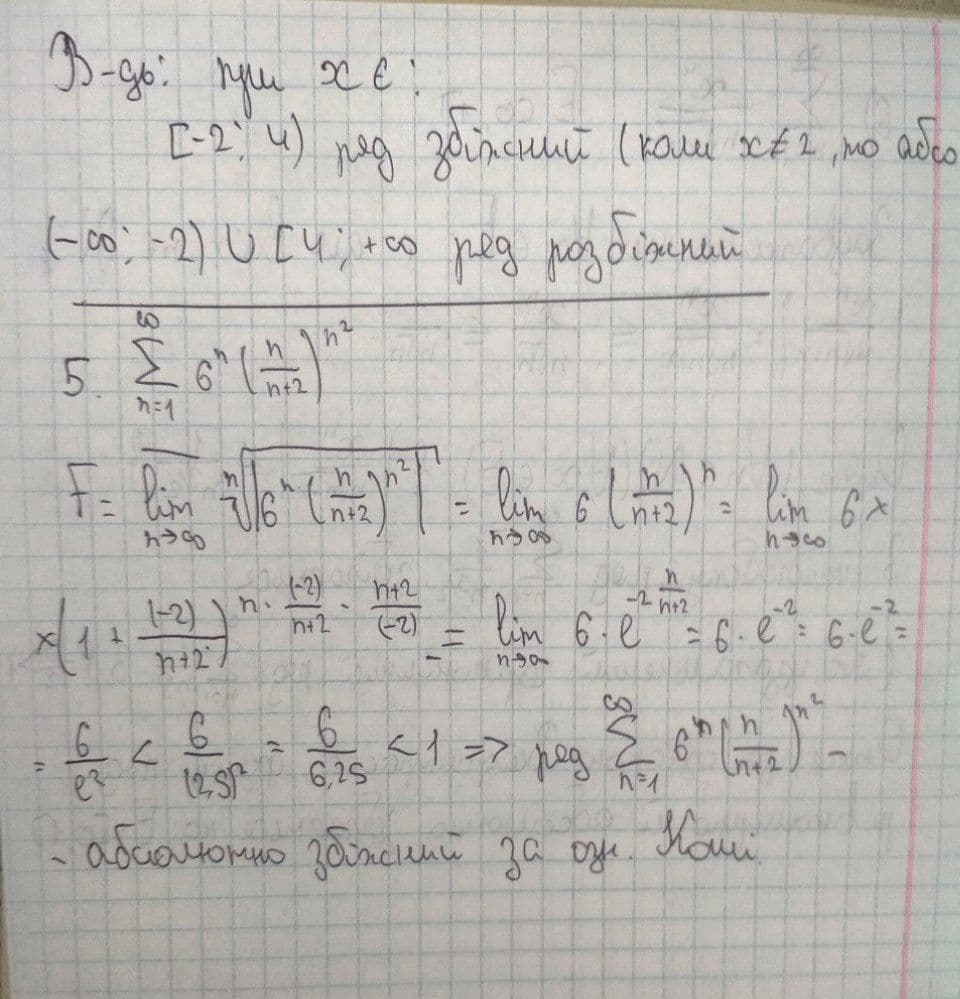 В-дь: при x ∈ :
[-2; 4) ряд збіжний (коли x≠2, то абсо
(-∞; -2) ∪ [4; +∞ ряд розбіжний
5. ∑_{n=1}^{∞} 6^n (n/(n+2))^{n^2}
r = \overline{lim}_{n→∞} \sqrt[n]{|6^n (n/(n+2))^{n^2}|} = lim_{n→∞} 6 (n/(n+2))^n = lim_{n→∞} 6 ×
×(1 + (-2)/(n+2))^{n · (-2)/(n+2) · (n+2)/(-2)} = lim_{n→∞} 6 · e^{-2 n/(n+2)} = 6 · e^{-2} = 6 · e^{-2} =
= 6/e^2 < 6/(2,5)^2 = 6/6,25 < 1 => ряд ∑_{n=1}^{∞} 6^n (n/(n+2))^{n^2} -
- абсолютно збіжний за озн. Коші.